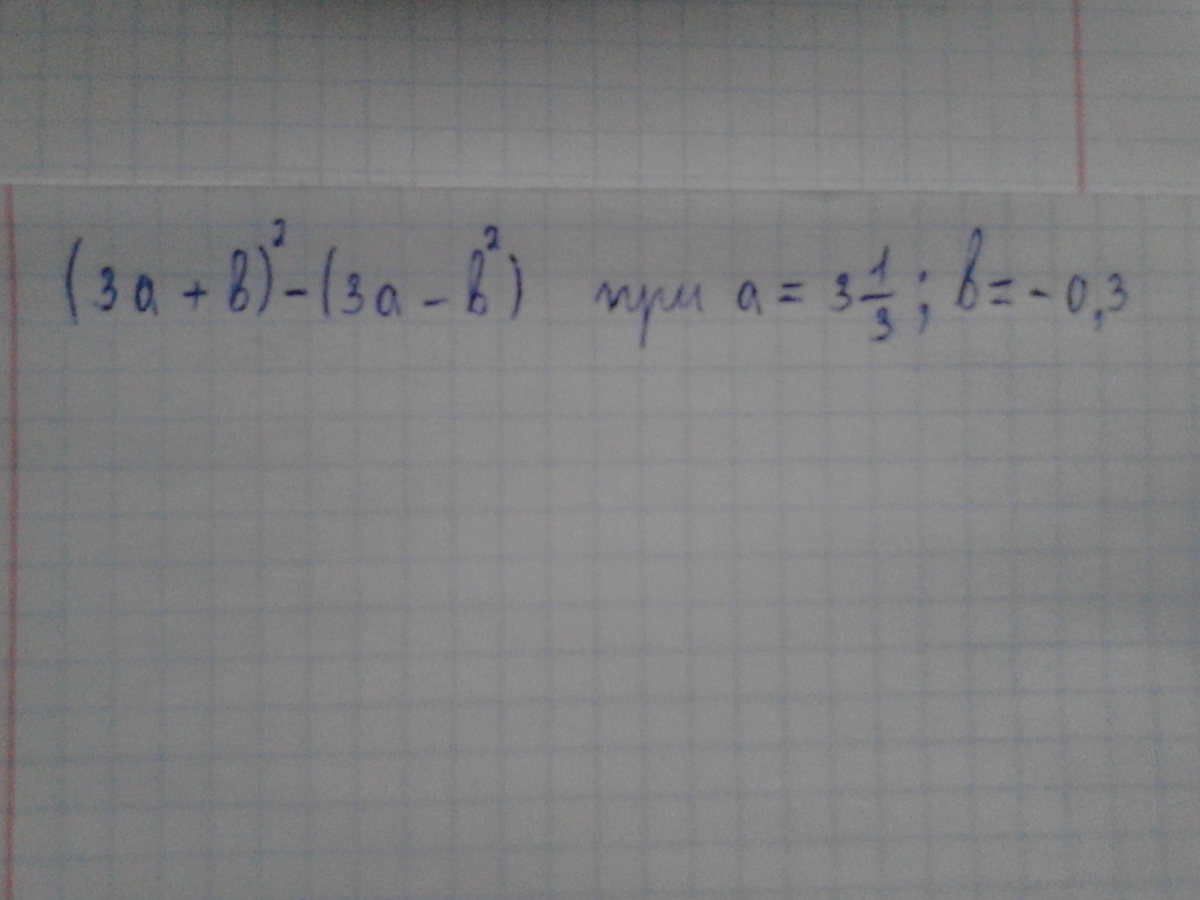 (3a + b)² - (3a - b²) при a = 3 1/3; b = - 0,3